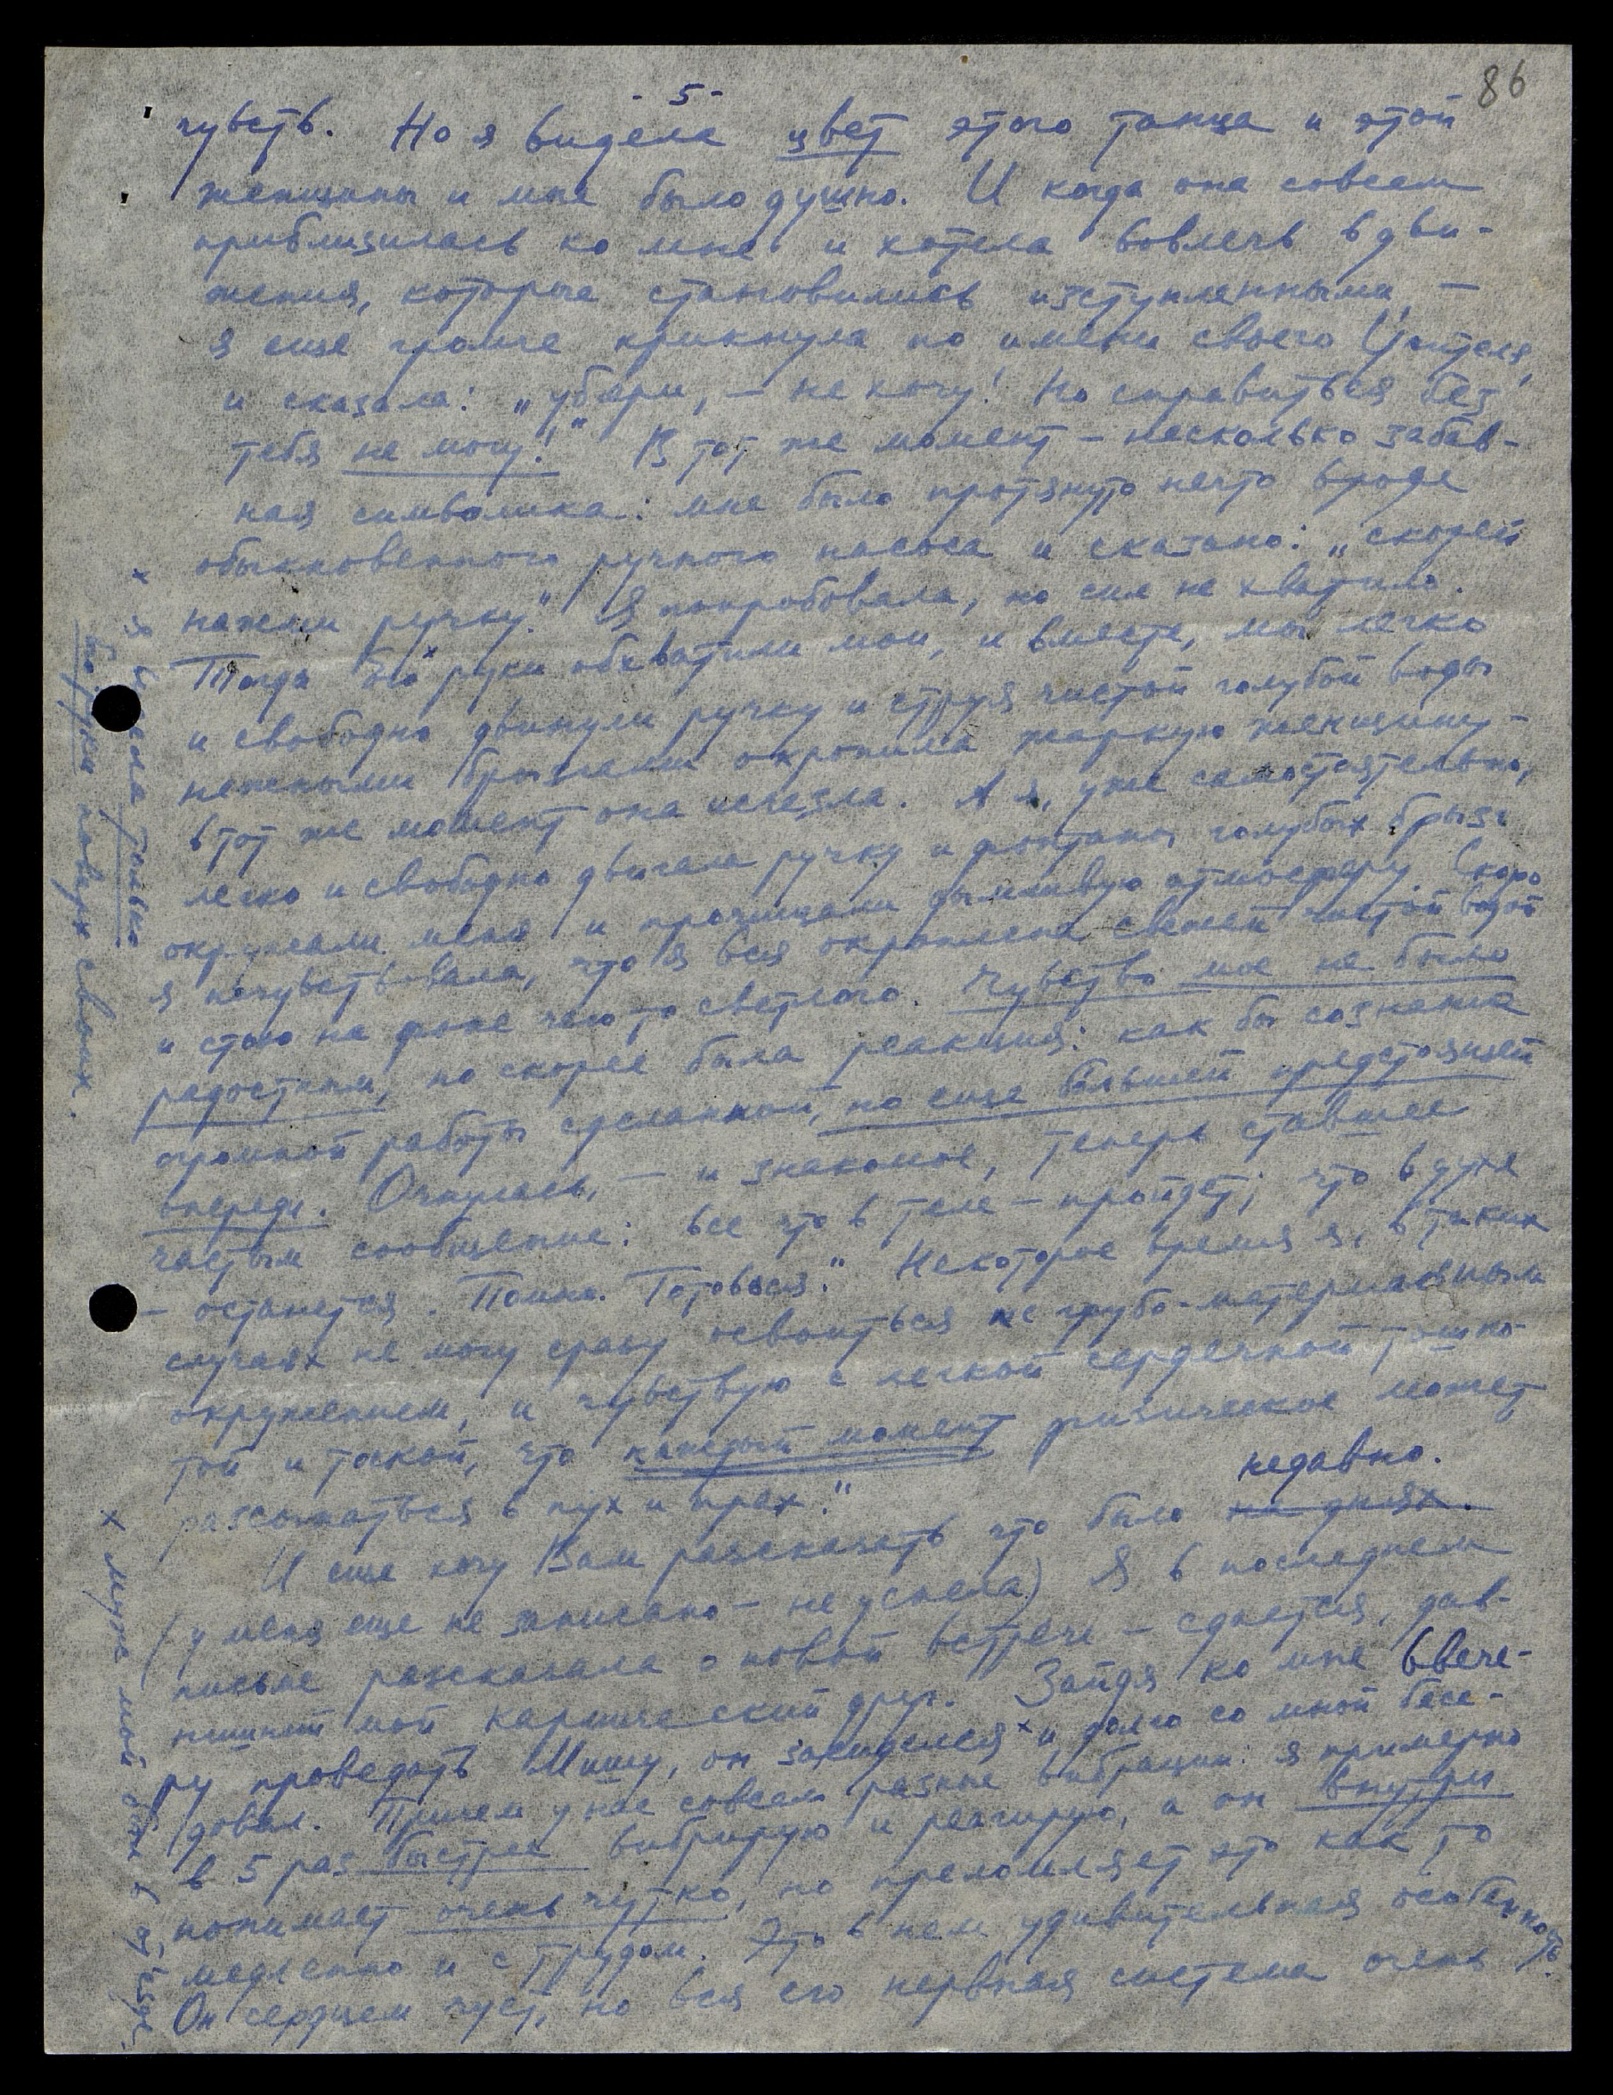 86
- 5 -
чувств. Но я видела цвет этого танца и этой
женщины и мне было душно. И когда она совсем
приблизилась ко мне и хотела вовлечь в дви-
жения, которые становились изступленными, —
я еще громче крикнула по имени своего Учителя,
и сказала: „убери, — не хочу! Но справиться без
тебя не могу!" В тот же момент — несколько забав-
ная символика: мне было протянуто нечто вроде
обыкновенного ручного насоса и сказано: „скорей
нажми ручку." Я попробовала, но сил не хватило.
Тогда Его х руки обхватили мои, и вместе, мы легко
и свободно двинули ручку и струя чистой голубой воды
нежными брызгами окропила жаркую женщину —
в тот же момент она исчезла. А я, уже самостоятельно,
легко и свободно двигала ручку и фонтаны голубых брызг
окружали меня и прочищали дымливую атмосферу. Скоро
я почувствовала, что я вся окроплена свежей чистой водой
и стою на фоне чего-то светлого. Чувство мое не было
радостным, но скорее была реакция: как бы сознание
огромной работы сделанной, но еще большей предстоящей
впереди. Очнулась, — и знакомое, теперь ставшее
частым сообщение: все что в теле — пройдет; что в духе
— останется. Помни. Готовься." Некоторое время я, в таких
случаях не могу сразу освоиться с грубо-материальным
окружением, и чувствую с легкой сердечной тошно-
той и тоской, что каждый момент физическое может
рассыпаться в пух и прах."
И еще хочу Вам рассказать что было на днях. недавно.
(у меня еще не записано — не успела) Я в последнем
письме рассказала о новой встрече — сдается, дав-
нишний мой кармический друг. Зайдя ко мне ввече-
ру проведать Мишу, он засиделся х и долго со мной бесе-
довал. Причем у нас совсем разные вибрации: я примерно
в 5 раз быстрее вибрирую и реагирую, а он внутри
понимает очень чутко, но преломляет это как то
медленно и с трудом. Это в нем удивительная особенность.
Он сердцем чист, но вся его нервная система очень
х я видела только
Его руки поверх своих.
х муж мой был в отъезде.